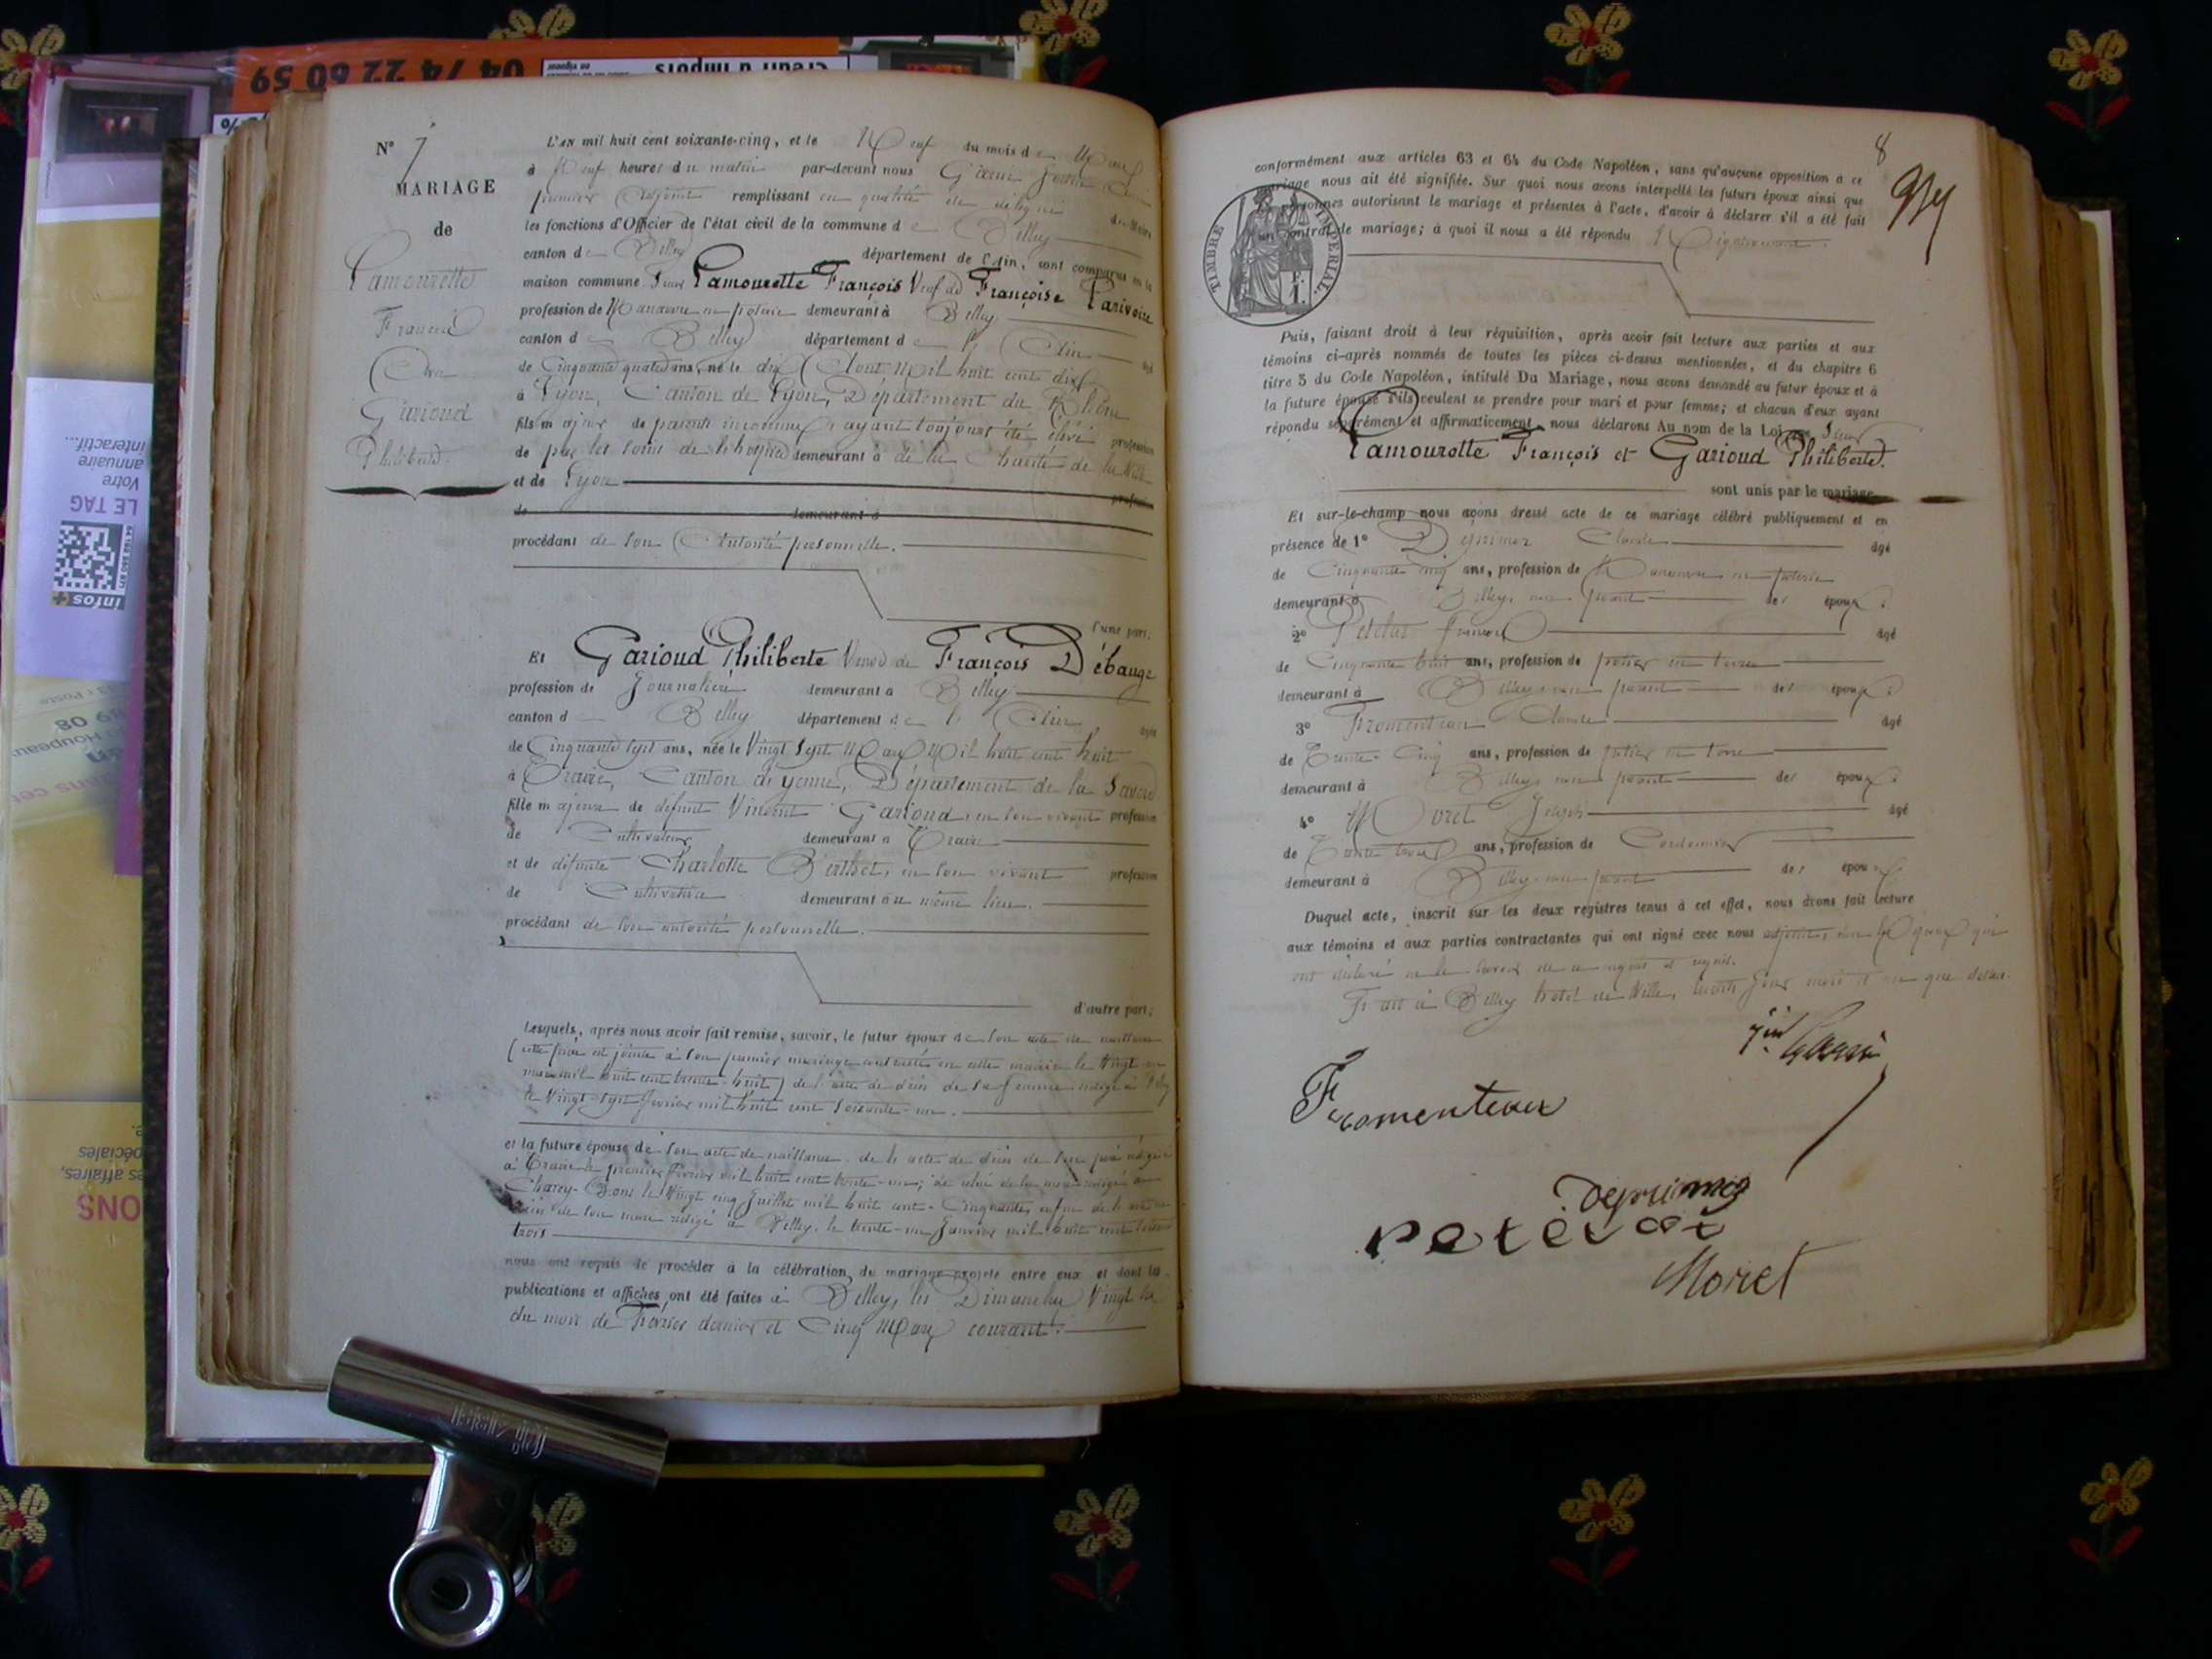 04 74 22 60 59
interactif...
annuaire
Votre
LE TAG
infos+
N° 7
MARIAGE
de
Lamourette
François
Garioud
Philiberte
L'AN mil huit cent soixante-cinq, et le Neuf du mois de Mars
à Neuf heures du matin par-devant nous
premier Adjoint remplissant en qualité de délégué du Maire
les fonctions d'Officier de l'état civil de la commune de Belley
canton de Belley département de l'Ain, sont comparus en la
maison commune Sieur Lamourette François Veuf de Françoise Parivoire
profession de Manœuvre en poterie demeurant à Belley
canton de Belley département de l'Ain âgé
de Cinquante quatre ans, né le dix Août Mil huit cent dix
à Lyon, Canton de Lyon, Département du Rhône
fils majeur de parents inconnus ayant toujours été élevé profession
de par les soins de l'hospice demeurant à de la Charité de la Ville
et de Lyon profession
de demeurant à
procédant de son Autorité personnelle.
d'une part;
Et Garioud Philiberte Veuve de François Débauge
profession de Journalière demeurant à Belley
canton de Belley département de l'Ain âgée
de Cinquante sept ans, née le Vingt Sept Mars Mil huit cent huit
à Traize, Canton de Yenne, Département de la Savoie
fille majeure de défunt Vincent Garioud, en son vivant profession
de Cultivateur demeurant à Traize
et de défunte Charlotte Berthet, en son vivant profession
de Cultivatrice demeurant au même lieu.
procédant de son autorité personnelle.
d'autre part;
Lesquels, après nous avoir fait remise, savoir, le futur époux de son acte de naissance
(cette pièce est jointe à son premier mariage contracté en cette mairie le Vingt un
mars mil huit cent trente-huit) de l'acte de décès de sa femme rédigé à Belley
le Vingt-sept février mil huit cent soixante-un.
et la future épouse de son acte de naissance, de l'acte de décès de son père rédigé
à Traize le premier février mil huit cent trente-un; de celui de sa mère rédigé à
le Vingt cinq Juillet mil huit cent-Cinquante, enfin de l'acte de
décès de son mari rédigé à Belley, le trente-un Janvier mil huit cent soixante
trois
nous ont requis de procéder à la célébration du mariage projeté entre eux et dont les
publications et affiches ont été faites à Belley, les Dimanches Vingt six
du mois de Février dernier et Cinq Mars courant.
8
conformément aux articles 63 et 64 du Code Napoléon, sans qu'aucune opposition à ce
mariage nous ait été signifiée. Sur quoi nous avons interpellé les futurs époux ainsi que
personnes autorisant le mariage et présentes à l'acte, d'avoir à déclarer s'il a été fait
contrat de mariage; à quoi il nous a été répondu Négativement.
TIMBRE IMPERIAL
Puis, faisant droit à leur réquisition, après avoir fait lecture aux parties et aux
témoins ci-après nommés de toutes les pièces ci-dessus mentionnées, et du chapitre 6
titre 5 du Code Napoléon, intitulé Du Mariage, nous avons demandé au futur époux et à
la future épouse s'ils veulent se prendre pour mari et pour femme; et chacun d'eux ayant
répondu séparément et affirmativement, nous déclarons Au nom de la Loi que Sieur
Lamourette François et Garioud Philiberte.
sont unis par le mariage
Et sur-le-champ nous avons dressé acte de ce mariage célébré publiquement et en
présence de 1° Déprimoz Claude âgé
de Cinquante cinq ans, profession de Manœuvre en poterie
demeurant à Belley, non parent des époux;
2° François âgé
de Cinquante huit ans, profession de potier en terre
demeurant à Belley non parent des époux;
3° Fromenteau Claude âgé
de Trente-Cinq ans, profession de potier en terre
demeurant à Belley, non parent des époux;
4° Moret Joseph âgé
de Trente trois ans, profession de Cordonnier
demeurant à Belley non parent des époux
Duquel acte, inscrit sur les deux registres tenus à cet effet, nous avons fait lecture
aux témoins et aux parties contractantes qui ont signé avec nous adjoint, non les époux qui
ont déclaré ne le savoir de ce enquis et requis.
Fait à Belley hôtel de Ville, lesdits jour mois et an que dessus.
Fromenteau
Deprimoz
Moret